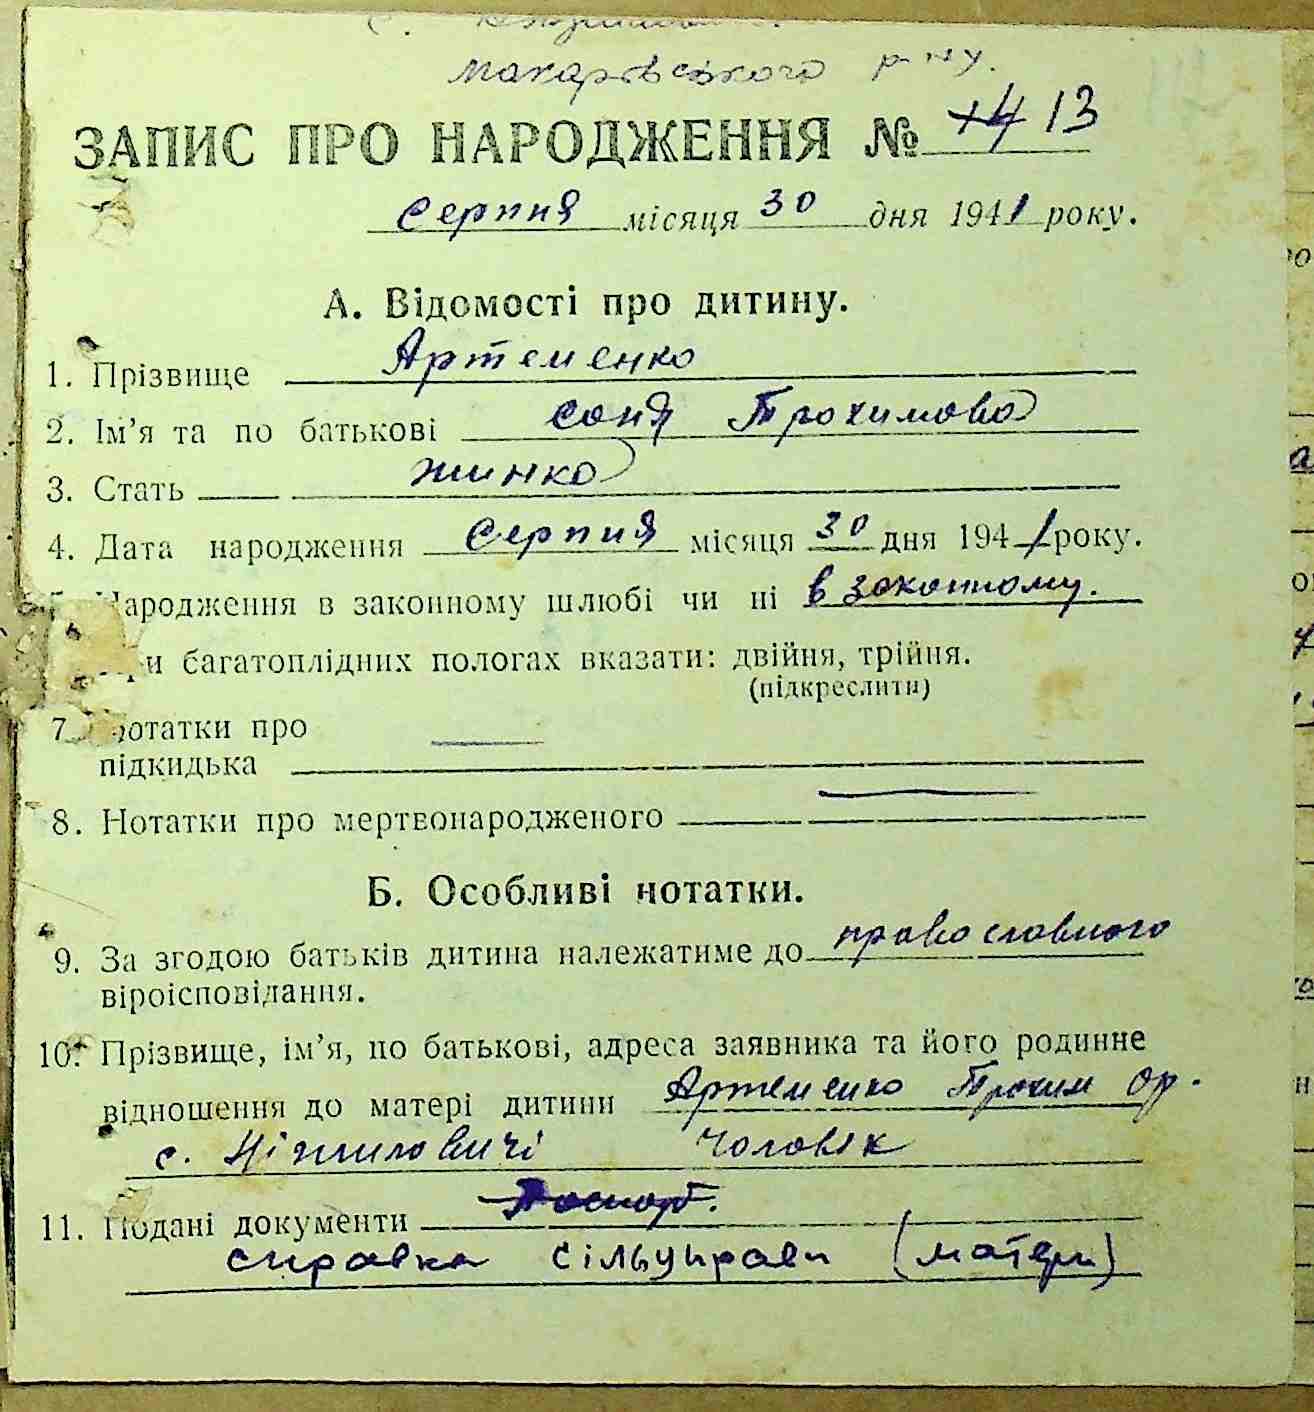 с.
макарівського р-ну.
ЗАПИС ПРО НАРОДЖЕННЯ № 13
серпня місяця 30 дня 1941 року.
А. Відомості про дитину.
1. Прізвище Артеменко
2. Ім'я та по батькові соня Трохимова
3. Стать жинка
4. Дата народження серпня місяця 30 дня 1941 року.
Народження в законному шлюбі чи ні в законному.
и багатоплідних пологах вказати: двійня, трійня.
(підкреслити)
7. Нотатки про
підкидька
8. Нотатки про мертвонародженого
Б. Особливі нотатки.
9. За згодою батьків дитина належатиме до православного
віроісповідання.
10. Прізвище, ім'я, по батькові, адреса заявника та його родинне
відношення до матері дитини Артеменко Трохим Ор.
с. Ніжиловичі чоловік
11. Подані документи Паспорт.
справка сільуправи (матери)